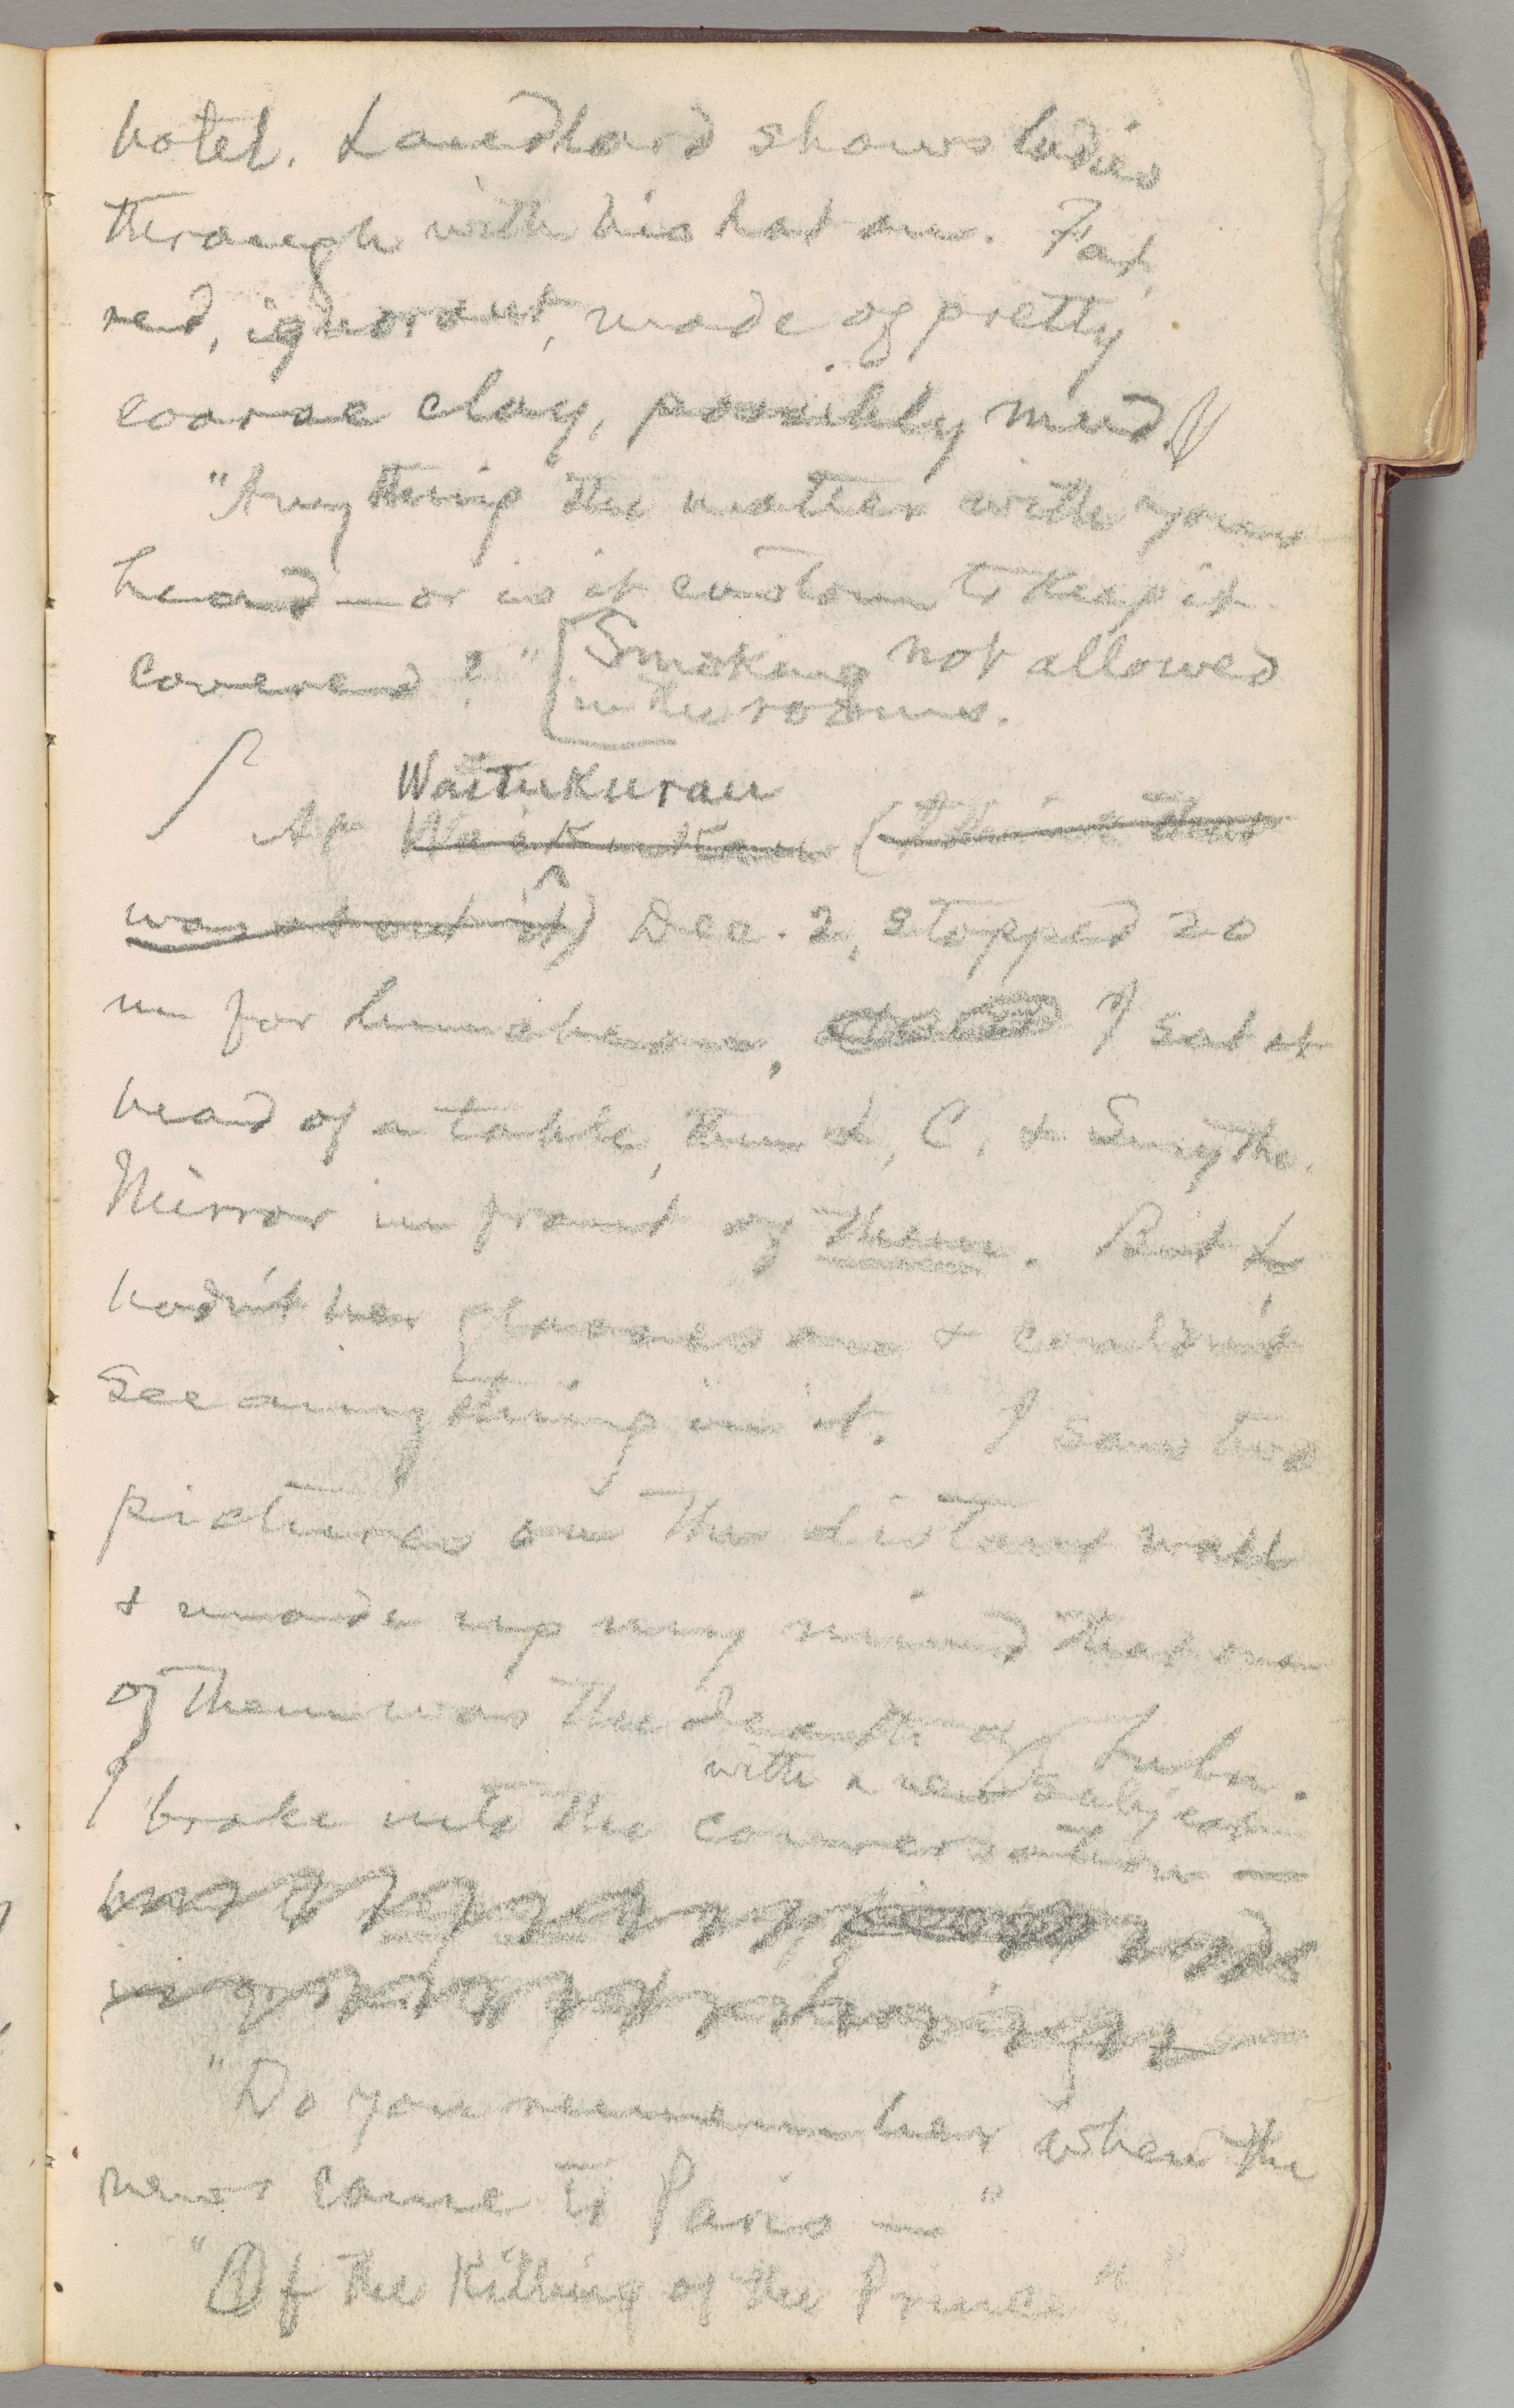 hotel. Landlord shows ladies
through with his hat on. Fat,
red, ignorant, made of pretty
coarse clay, possibly mud.
"Anything the matter with your
head — or is it custom to keep it
covered?" [Smoking not allowed
in the rooms.
Waitukurau
At Waikukau (think that
was about it) Dec. 2, stopped 20
m for luncheon, I sat at
head of a table, then L, C, & Smythe.
Mirror in front of them. But L,
hadn't her glasses on & couldn't
see anything in it. I saw two
pictures on the distant wall
& made up my mind that one
of them was the death of Lulu.
with a new subject
I broke into the conversation —
"Do you remember when the
news came to Paris —"
"Of the killing of the Prince"